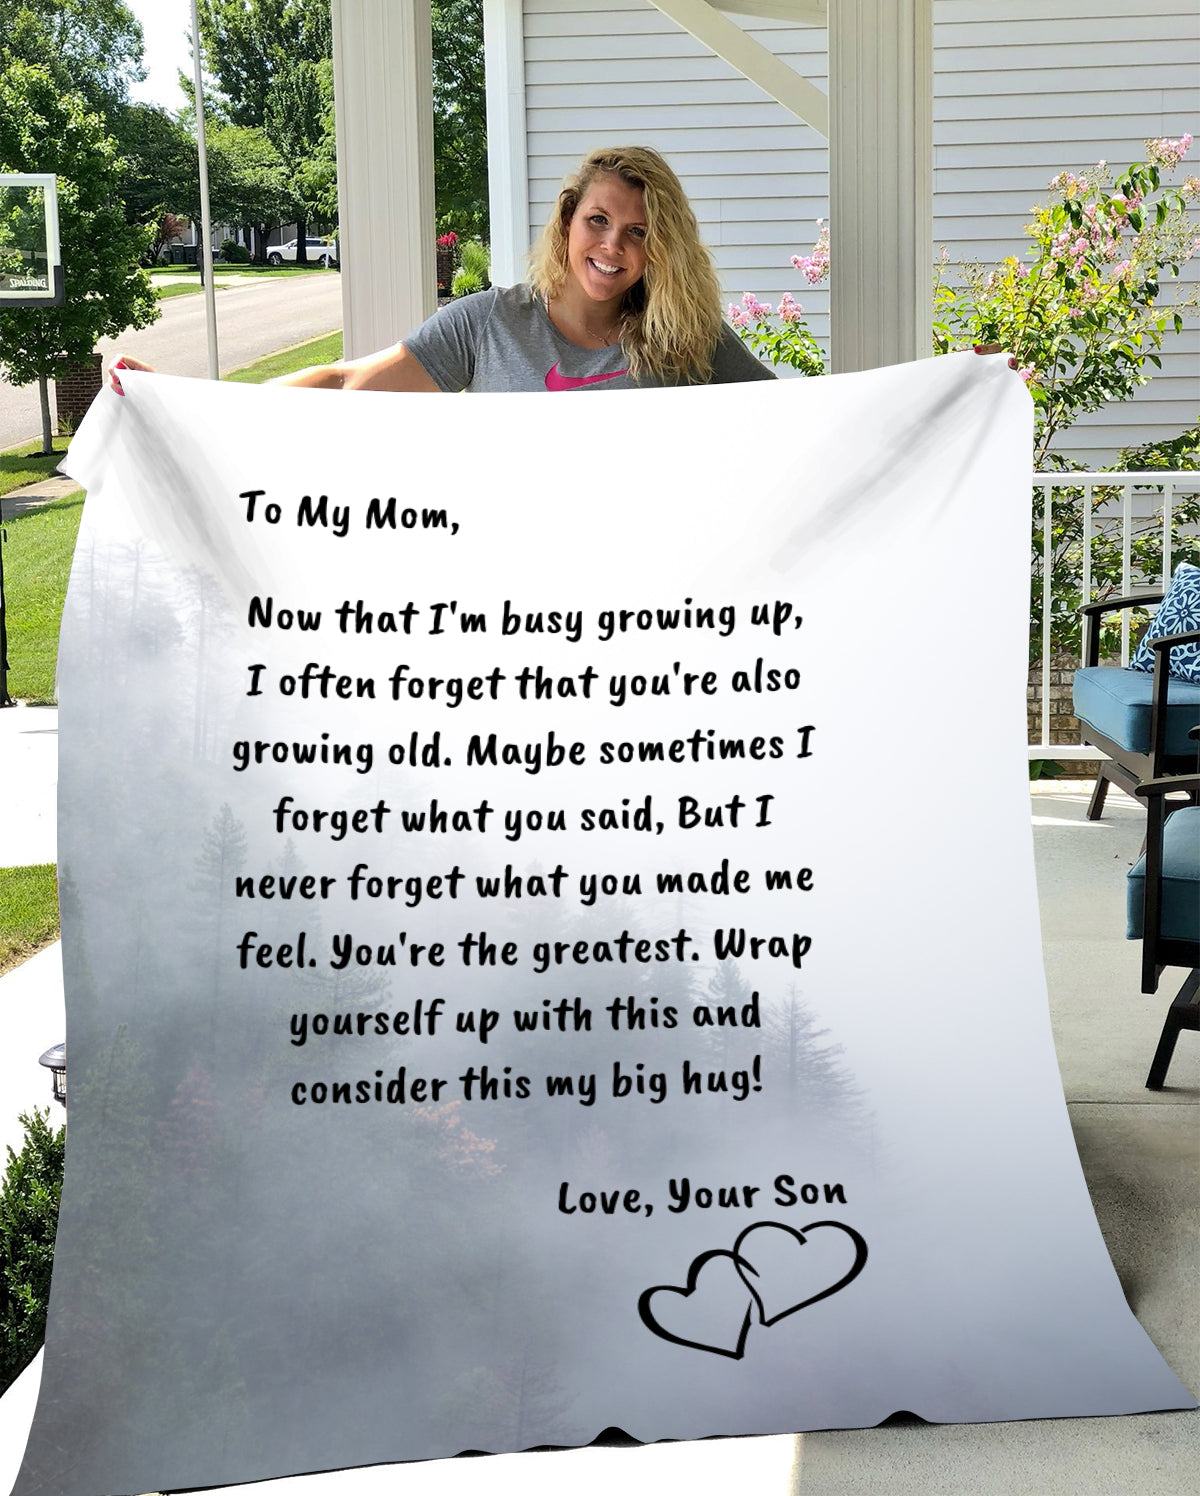 SPALDING
To My Mom,
Now that I'm busy growing up,
I often forget that you're also
growing old. Maybe sometimes I
forget what you said, But I
never forget what you made me
feel. You're the greatest. Wrap
yourself up with this and
consider this my big hug!
Love, Your Son